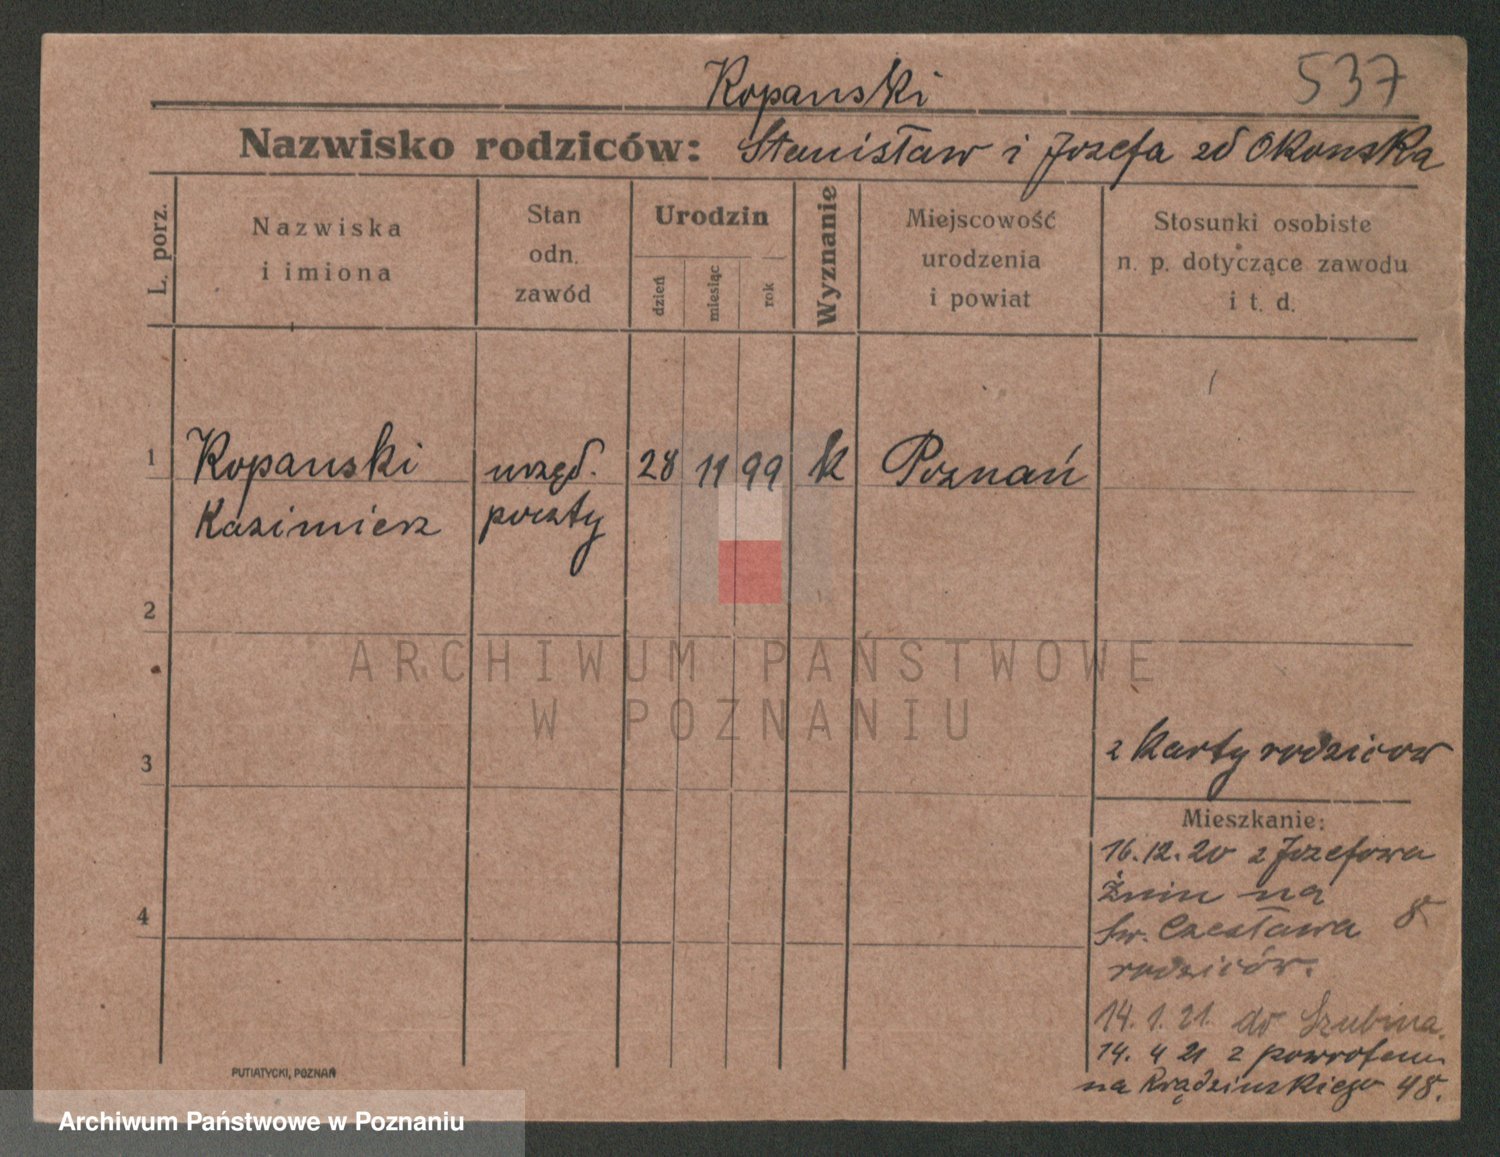 Kopanski
537
Nazwisko rodziców: Stanisław i Jozefa zd Okonska
L. porz.
Nazwiska
i imiona
Stan
odn.
zawód
Urodzin
dzień
miesiąc
rok
Wyznanie
Miejscowość
urodzenia
i powiat
Stosunki osobiste
n. p. dotyczące zawodu
i t. d.
1
Kopanski
Kazimierz
urzęd.
poczty
28 11 99 k Poznań
2
ARCHIWUM PAŃSTWOWE
W POZNANIU
3
z karty rodzicow
Mieszkanie:
16.12.20 z Jozefowa
Żnin na
Św. Czesława 8
rodziców.
4
14.1.21. do Szubina.
14. 4 21 z powrotem
na 48.
PUTIATYCKI, POZNAŃ
Archiwum Państwowe w Poznaniu